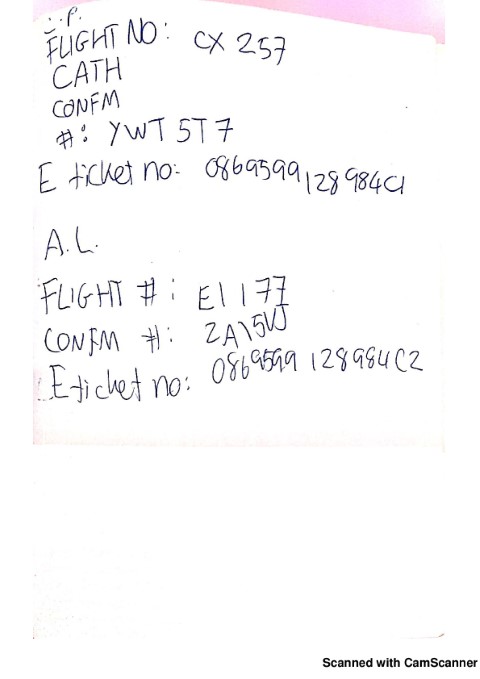 FLIGHT NO: CX 257
CATH
CONFM
#: YWT 5T7
E ticket no: 0869599128984C1
A.L.
FLIGHT #: EI 177
CONFM #: 2A15WJ
E ticket no: 0869599128984C2
Scanned with CamScanner